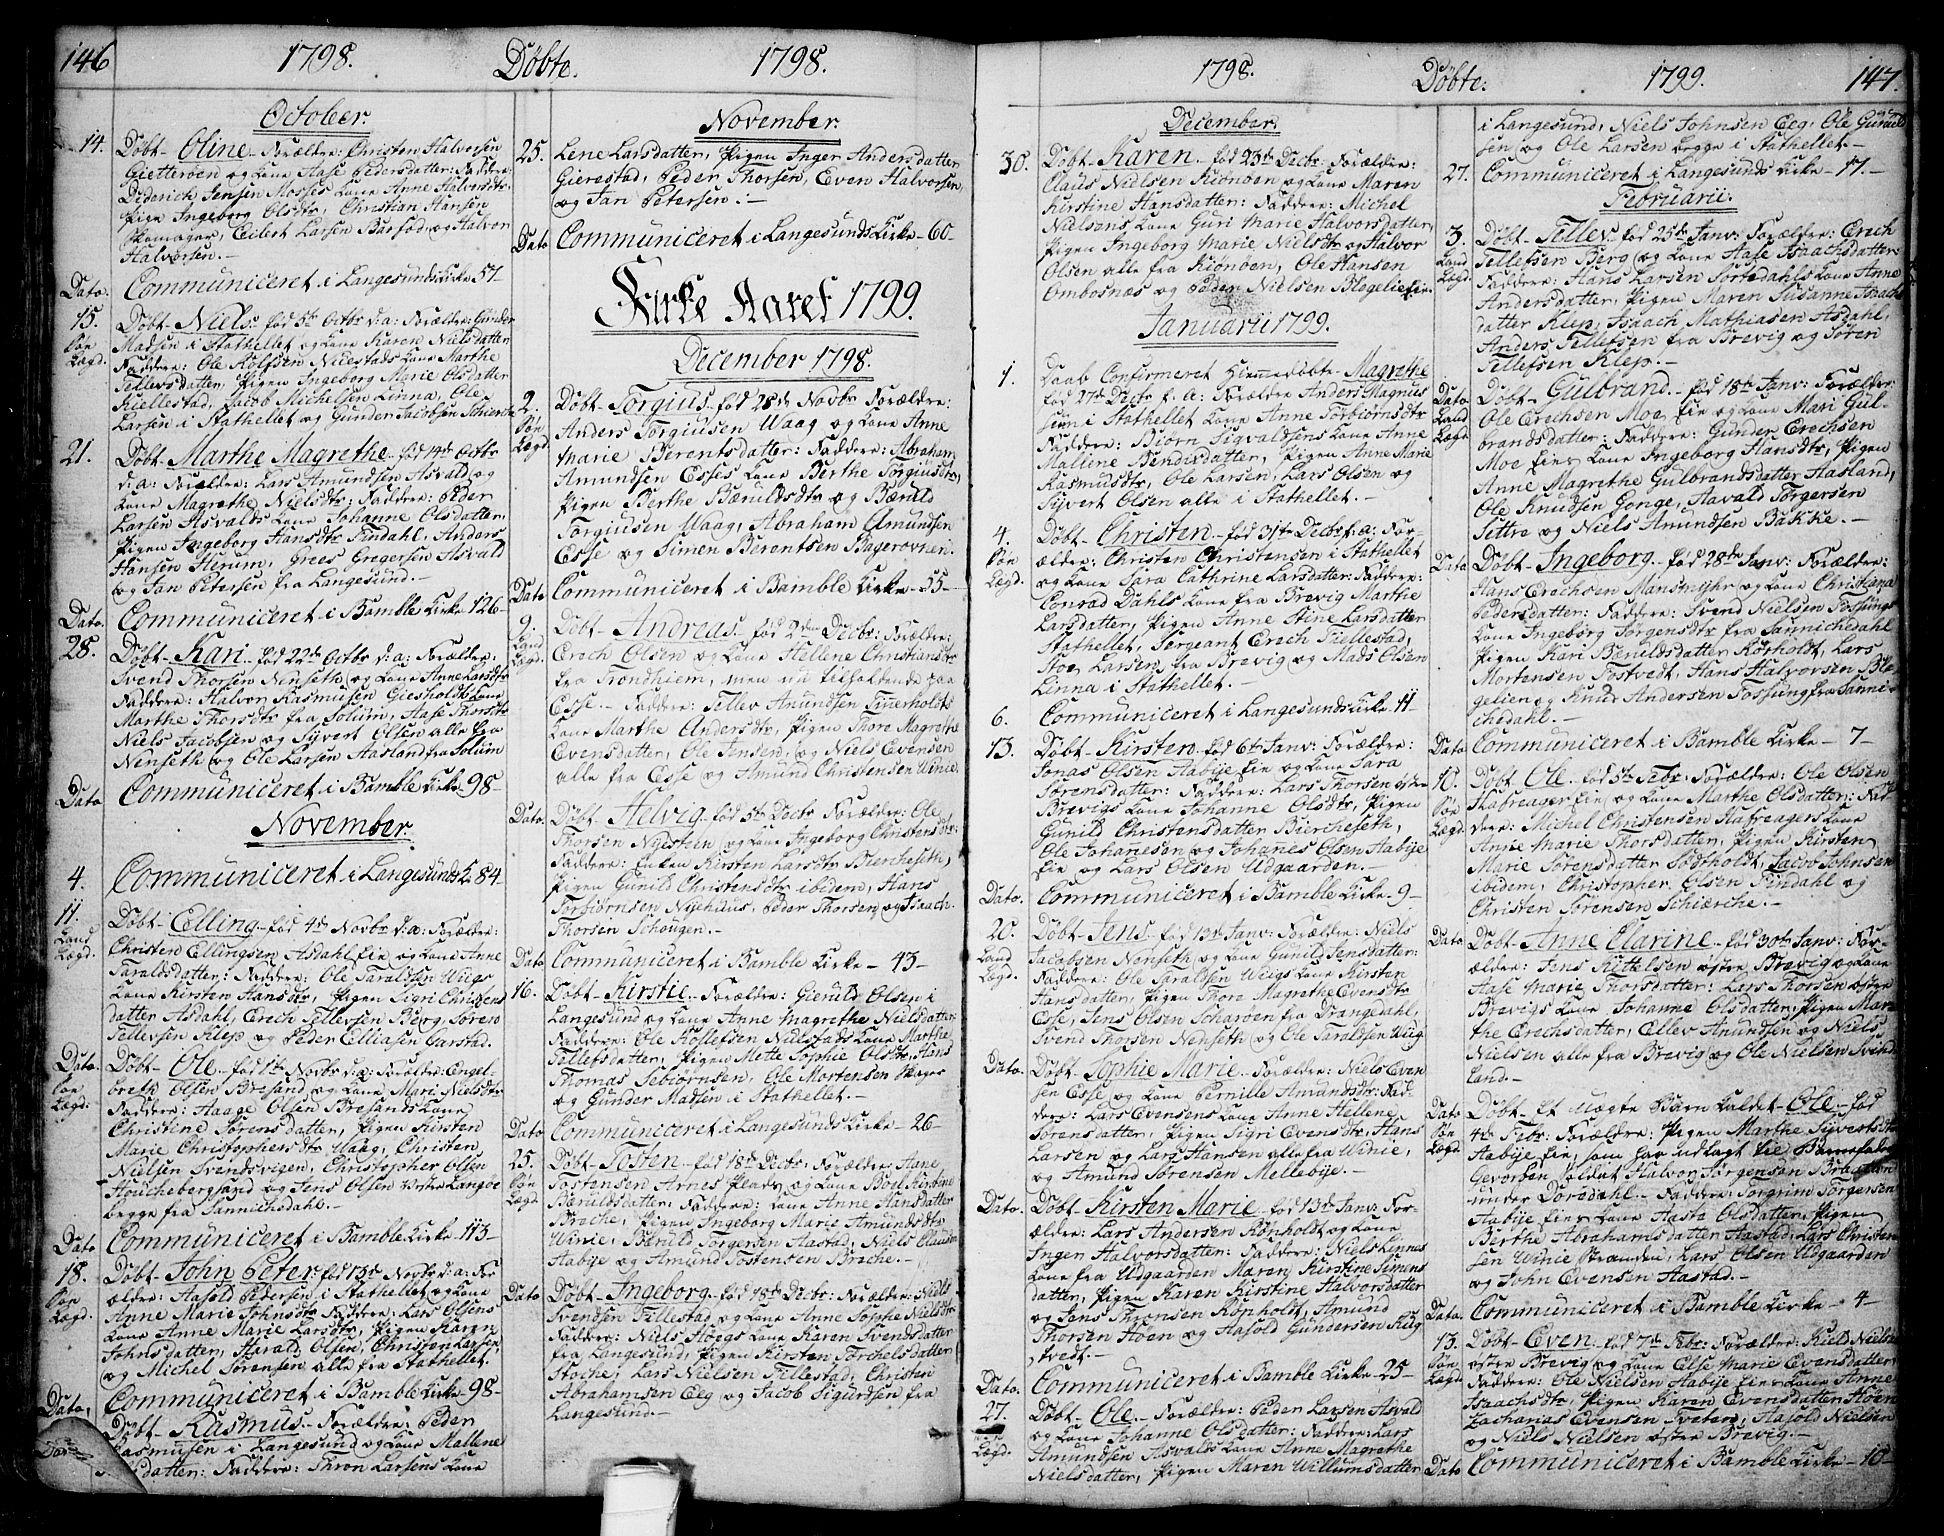 146
1798.
Döbte.
1798.
October.
14.
Döbt Oline. Forældre: Christen Halvorsen
Gietteröen og Kone Aase Pedersdatter: Faddere:
Diderich Jensen Mosses Kone Anne Halvorsdtr.
Pige Ingeborg Olsdtr, Christian Hansen
Skomager, Eilert Larsen Barfod, og Halvor
Halvorsen.
Dato. Communiceret i Langesunds Kirke 57
15. Döbt Niels født 5te Octbr d: a: Forældre: Gunder
Madsen i Stathellet og Kone Karen Nielsdatter
Faddere: Ole Rolfsen Nustads Kone Marthe
Tellevsdatter, Pigen Ingeborg Marie Olsdatter
Kiellestad, Jacob Michelsen Linna, Ole
Larsen i Stathellet og Gunder Jacobsen
21. Döbt Marthe Magrethe født 14de Octbr
d: a: Forældre: Lars Amundsen Asvald og
Kone Magrethe Nielsdtr: Faddere: Peder
Larsen Asvalds Kone Johanne Olsdatter.
Pigen Ingeborg Hansdtr Findahl, Anders
Hansen Herum, Grees Gregersen Asvald
og Jan Petersen fra Langesund.
Dato. Communiceret i Bamble Kirke 126
28. Döbt Kari født 22de Octbr d: a: Forældre:
Svend Thorsen Nenseth og Kone Anne Larsdtr
Faddere: Halvor Rasmusen Giesholdts Kone
Marthe Thorsdtr fra Solum, Aase Thorsdtr
Niels Jacobsen og Syvert Olsen alle fra
Nenseth og Ole Larsen Aasland fra Solum
Dato Communiceret i Bamble Kirke 98
November.
4. Communiceret i Langesunds K. 84
11. Döbt Elling født 4de Novbr d: a: Forældre:
Christen Ellingsen Asdahl Eie og Kone Anne
Taraldsdatter: Faddere: Ole Taraldsen Wiigs
Kone Kirsten Hansdtr, Pigen Sigri Christens
datter Asdahl, Erech Tellevsen Berg, Sören
Tellevsen Klep og Peder Elliasen Aarstad.
Dato. Döbt Ole født 1te Novbr d: a: Forældre: Engel-
breth Olsen Bresand og Kone Mari Nielsdtr
Faddere: Aage Olsen Bresands Kone
Christine Sörensdatter, Pigen Kirsten
Marie Christophersdtr Waag, Christen
Nielsen Svendsvigen, Christopher Olsen
Houchebergsand og Jens Olsen Vestre Langöe
begge fra Sannichsdahl.
Dato Communiceret i Bamble Kirke 113
18. Döbt John Peter født 13de Novbr d: a: For
ældre: Aasold Pedersen i Stathellet og Kone
Anne Marie Johnsdtr Faddere: Lars Olsens
Kone Anne Marie Larsdtr, Pigen Karen
Johnsdatter, Harald Olsen, Christen Larsen,
og Michel Sörensen alle fra Stathellet.
Dato, Communiceret i Bamble Kirke 98
Döbt Rasmus Forældre: Peder
Rasmusen i Langesund og Kone Mallene
Nilsdatter: Faddere: Thron Larsens Kone
November.
25. Lene Larsdatter, Pigen Inger Andersdatter
Gierestad, Peder Thorsen, Even Halvorsen,
og Jan Petersen.
Dato Communiceret i Langesunds Kirke 60
Kirke Aaret 1799.
December 1798.
2. Döbt Torgius født 28de Novbr Forældre:
Anders Torgiusen Waag og Kone Anne
Marie Berentsdatter: Faddere: Abraham
Amundsen Esses Kone Berthe Torgiusdtr,
Pigen Berthe Bæruldsdtr og Bæruld
Torgiusen Waag, Abraham Amundsen
Esse og Simen Berentsen Bagerovnen.
Dato Communiceret i Bamble Kirke 55
9. Döbt Andreas født 2den Decbr: Forældre:
Erech Olsen og Kone Hellene Christiansdtr
fra Trondhiem, men nu tilholdende paa
Esse. Faddere: Tellev Anundsen Tinnerholts
Kone Marthe Andersdtr, Pigen Thore Magrethe
Evensdatter, Ole Jensen, og Niels Evensen
alle fra Esse og Amund Christensen Winie.
Dato. Döbt Helvig født 5te Decbr Forældre: Ole
Thorsen Nyesten og Kone Ingeborg Christensdtr:
Faddere: Enken Kirsten Larsdtr Biercheseth,
Pigen Gunild Christensdtr ibidem, Hans
Torbiörnsen Nyehuus, Peder Thorsen, og Isaach
Thorsen Schougen.
Dato Communiceret i Bamble Kirke 43
16. Döbt Kirstie Forældre: Gieruld Olsen i
Langesund og Kone Anne Magrethe Nielsdatter
Faddere: Ole Rollefsen Nustads Kone Marthe
Tellefsdatter, Pigen Mette Sophie Olsdtr, Hans
Thomas Sebiörnsen, Ole Mortensen
og Gunder Madsen i Stathellet.
Dato Communiceret i Langesunds Kirke 26
25. Döbt Tosten født 18de Decbr, Forældre: Aane
Tostensen Arnes Plads og Kone Boel Kirstine
Bæruldsdatter: Faddere: Kone Anne Hansdatter
Broche, Pigen Ingeborg Marie Amundsdtr
Winie, Bæruld Torgersen Aastad, Niels Clausen
Aabye og Amund Tostensen Broche.
Dato Döbt Ingeborg født 18de Decbr Forældre: Niels
Svendsen Fillestad og Kone Anne Sophe Nielsdtr
Faddere: Niels Höggs Kone Karen Svendsdatter
fra Langesund, Pigen Kirsten Torchelsdatter
Stoche, Lars Nielsen Fillestad, Christen
Abrahamsen Eeg og Jacob Sigurdsen fra
Langesund.
1798.
Döbte.
1799.
147.
December.
30. Döbt Karen født 23de Decbr Forældre:
Claus Nielsen Kiönöen og Kone Maren
Kirstine Hansdatter: Faddere: Michel
Nielsens Kone Guri Marie Halvorsdatter,
Pigen Ingeborg Marie Nielsdtr og Halvor
Olsen alle fra Kiönöen, Ole Hansen
Ombosnæs og Peder Nielsen Blegelie Eie.
Januarii 1799.
1. Daab Confirmeret Hiemmedöbte Magrethe
født 27de Decbr f. a: Forældre Anders Magnus
sen i Stathellet Kone Anne Torbiörnsdtr
Faddere: Biörn Sigvaldsens Kone Anne
Malene Bendixdatter, Pigen Anne Marie
Rasmusdtr, Ole Larsen, Lars Olsen og
Syvert Olsen alle i Stathellet.
4. Döbt Christen født 31te Decbr f. a: For-
ældre: Christen Christensen i Stathellet
og Kone Sara Cathrine Larsdatter: Faddere:
Conrad Dahls Kone fra Brevig Marthe
Larsdatter, Pigen Anne Stine Larsdatter
Stathellet, Sergeant Erech Fiellestad,
Stoe Larsen, fra Brevig og Mads Olsen
Linna i Stathellet.
6. Communiceret i Langesunds Kirke 11
13. Döbt Kirsten født 6te Janv: Forældre:
Jonas Olsen Aabye Eie og Kone Sara
Sörensdatter: Faddere: Lars Thorsen östre
Brevigs Kone Johanne Olsdtr, Pigen
Gunild Christensdatter Biercheseth,
Ole Johanesen og Johanes Olsen Aabye
Eie og Lars Olsen Udgaarden.
Dato. Communiceret i Bamble Kirke 9
20. Döbt Jens født 13de Janv: Forældre: Niels
Jacobsen Nenseth og Kone Gunild Jensdatter:
Faddere: Ole Taraldsen Wiigs Kone Kirsten
Hansdatter, Pigen Thore Magrethe Evensdtr
Esse, Jens Olsen Scharöen fra Drangedahl,
Svend Thorsen Nenseth og Ole Taraldsen Wiig
Dato. Döbt Sophie Marie Forældre: Niels Even
sen Esse og Kone Pernille Amundsdtr: Fad-
dere: Lars Evensens Kone Anne Hellene
Sörensdatter, Pigen Sigri Evensdtr, Hans
Larsen og Lars Hansen alle fra Winie,
og Amund Sörensen Mellebye.
Dato. Döbt Kirsten Marie født 13de Janv: For-
ældre: Lars Andersen Rönholdt og Kone
Inger Halvorsdatter: Faddere: Niels Linnes
Kone fra Udgaarden Maren Kirstine Simens
datter, Pigen Karen Kirstine Halvorsdatter
og Jens Thronsen Rönholdt, Amund
Thorsen Hoen og Aasold Gundersen Rug
tvedt.
Dato. Communiceret i Bamble Kirke 25
27. Döbt Ole. Forældre: Peder Larsen Asvald
og Kone Johanne Olsdatter: Faddere: Lars
Amundsen Asvalds Kone Anne Magrethe
Nielsdatter, Pigen Maren Willumsdatter
i Langesund, Niels Johnsen Eeg, Ole Gunuld
sen og Ole Larsen begge i Stathellet.
27. Communiceret i Langesunds Kirke 17.
Februarii.
3. Döbt Tellev født 25de Janv: Forældre: Erech
Tellefsen Berg og Kone Aase Isaachsdatter
Faddere: Hans Larsen Sortedahls Kone Anne
Andersdatter, Pigen Maren Susanne Isachs
datter Klep, Isaach Mathiasen Asdahl,
Anders Tellefsen fra Brevig og Sören
Tellefsen Klep.
Dato Döbt Gulbrand født 18de Janv: Forældre:
Ole Erechsen Moe Eie og Kone Mari Gul-
brandsdatter: Faddere: Gunder Erechsen
Moe Eies Kone Ingeborg Hansdtr, Pigen
Anne Magrethe Gulbrandsdatter Aasland,
Ole Knudsen Gonge, Aavald Törgersen
Settre og Niels Amundsen Bakke.
Dato Döbt Ingeborg født 28de Janv: Forældre:
Hans Erechsen Mansmyhr og Kone Christiana
Pedersdatter: Faddere: Svend Nielsen Fossings
Kone Ingeborg Törgensdtr fra Sannichedahl
Pigen Kari Benildsdatter Rörholdt, Lars
Mortensen Tostvedt, Hans Halvorsen Ble-
gelien og Knud Andersen Fossing fra Sanni-
chedahl.
Dato Communiceret i Bamble Kirke 7
10. Döbt Ole født 5te Febr: Forældre: Ole Olsen
Skabreager Eie og Kone Marthe Olsdatter: Fad-
dere: Michel Christensen Hafreagers Kone
Anne Marie Thorsdatter, Pigen Kirsten
Marie Sörensdatter Södholdt, Jacob Johnsen
ibidem, Christopher Olsen Findahl og
Christen Sörensen Schierche.
Dato. Döbt Anne Elarine født 30te Janv: For-
ældre: Jens Kittelsen östre Brevig og Kone
Aase Marie Thorsdatter: Lars Thorsen östre
Brevigs Kone Johanne Olsdatter, Pigen Mar-
the Erechsdatter, Ellev Andersen og Niels
Nielsen alle fra Brevig og Ole Nielsen Svind
land.
Dato Döbt Et Uægte Barn kaldet Ole født
4de Febr: Forældre: Pigen Marthe Syvertsdtr
Aabye Eie, som har udlagt til Barnefader
Gevorben Soldat Halvor Jörgensen
under Dorsdahl. Faddere: Torgrim Törgersen
Aabye Eies Kone Aasta Olsdatter, Pigen
Berthe Abrahamsdatter Aastad, Lars Christen
sen Winie Stranden, Lars Olsen Udgaarden
og John Evensen Aastad.
Dato. Communiceret i Bamble Kirke 4
13. Döbt Even født 7de Febr: Forældre: Kield Nielsen
östre Brevig og Kone Else Marie Evensdatter,
Faddere: Ole Nielsen Aabye Eies Kone Anne
Isaachsdtr, Pigen Karen Evensdatter Höen,
Zacharias Evensen Tveten, Aasold Nielsen
og Niels Nielsen östre Brevig.
Dato Communiceret i Bamble Kirke 10